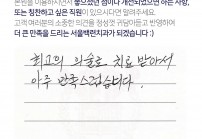 본원을 이용하시면서 좋았었던 점이나 개선되었으면 하는 사항,
또는 칭찬하고 싶은 직원이 있으시다면 알려주세요.
고객 여러분의 소중한 의견을 정성껏 귀담아듣고 반영하여
더 큰 만족을 드리는 서울백런치과가 되겠습니다 :)
최고의 의술로 치료 받아서
아주 만족스럽습니다.